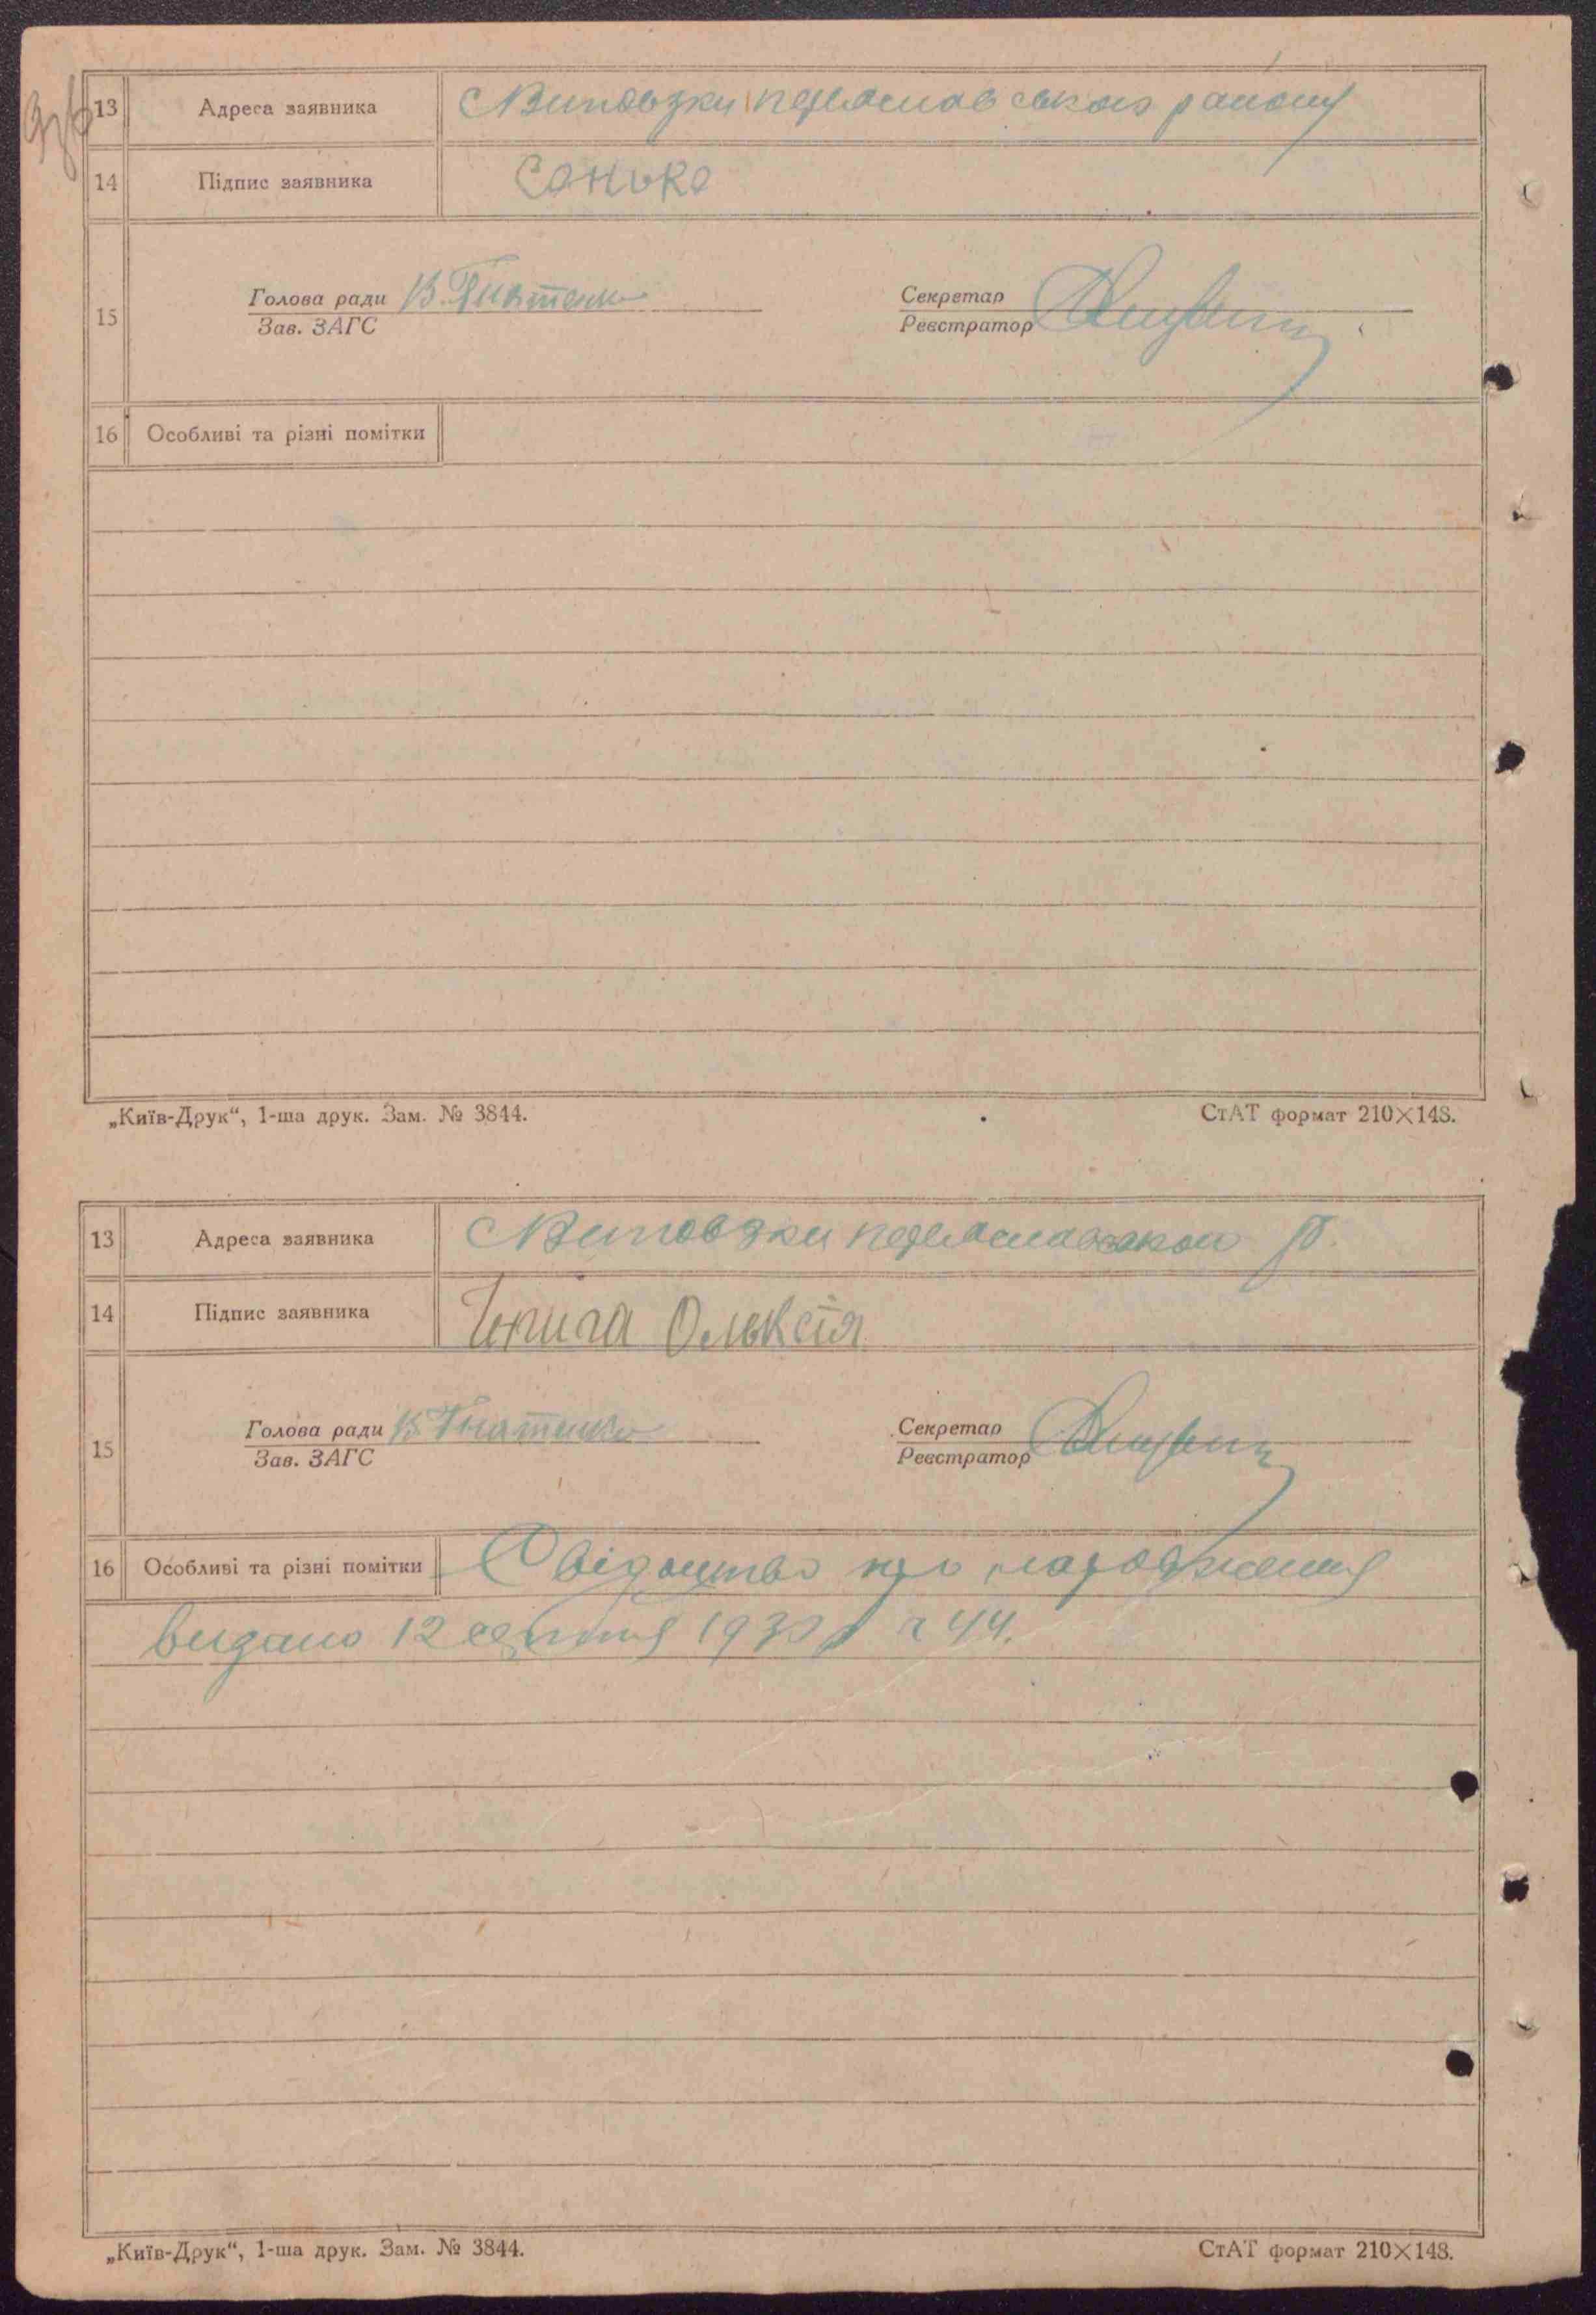 13 Адреса заявника Виповзки переяславського району
14 Підпис заявника Сонько
15 Голова ради В. Гнатенко Секретар
Зав. ЗАГС Реєстратор
16 Особливі та різні помітки
„Київ-Друк“, 1-ша друк. Зам. № 3844. СтАТ формат 210×148.
13 Адреса заявника Виповзки переяславськои р.
14 Підпис заявника Ольксія
15 Голова ради В Гнатенко Секретар
Зав. ЗАГС Реєстратор
16 Особливі та різні помітки Свідоцтво про народження
видано 12 серпня 193 ч 44.
„Київ-Друк“, 1-ша друк. Зам. № 3844. СтАТ формат 210×148.